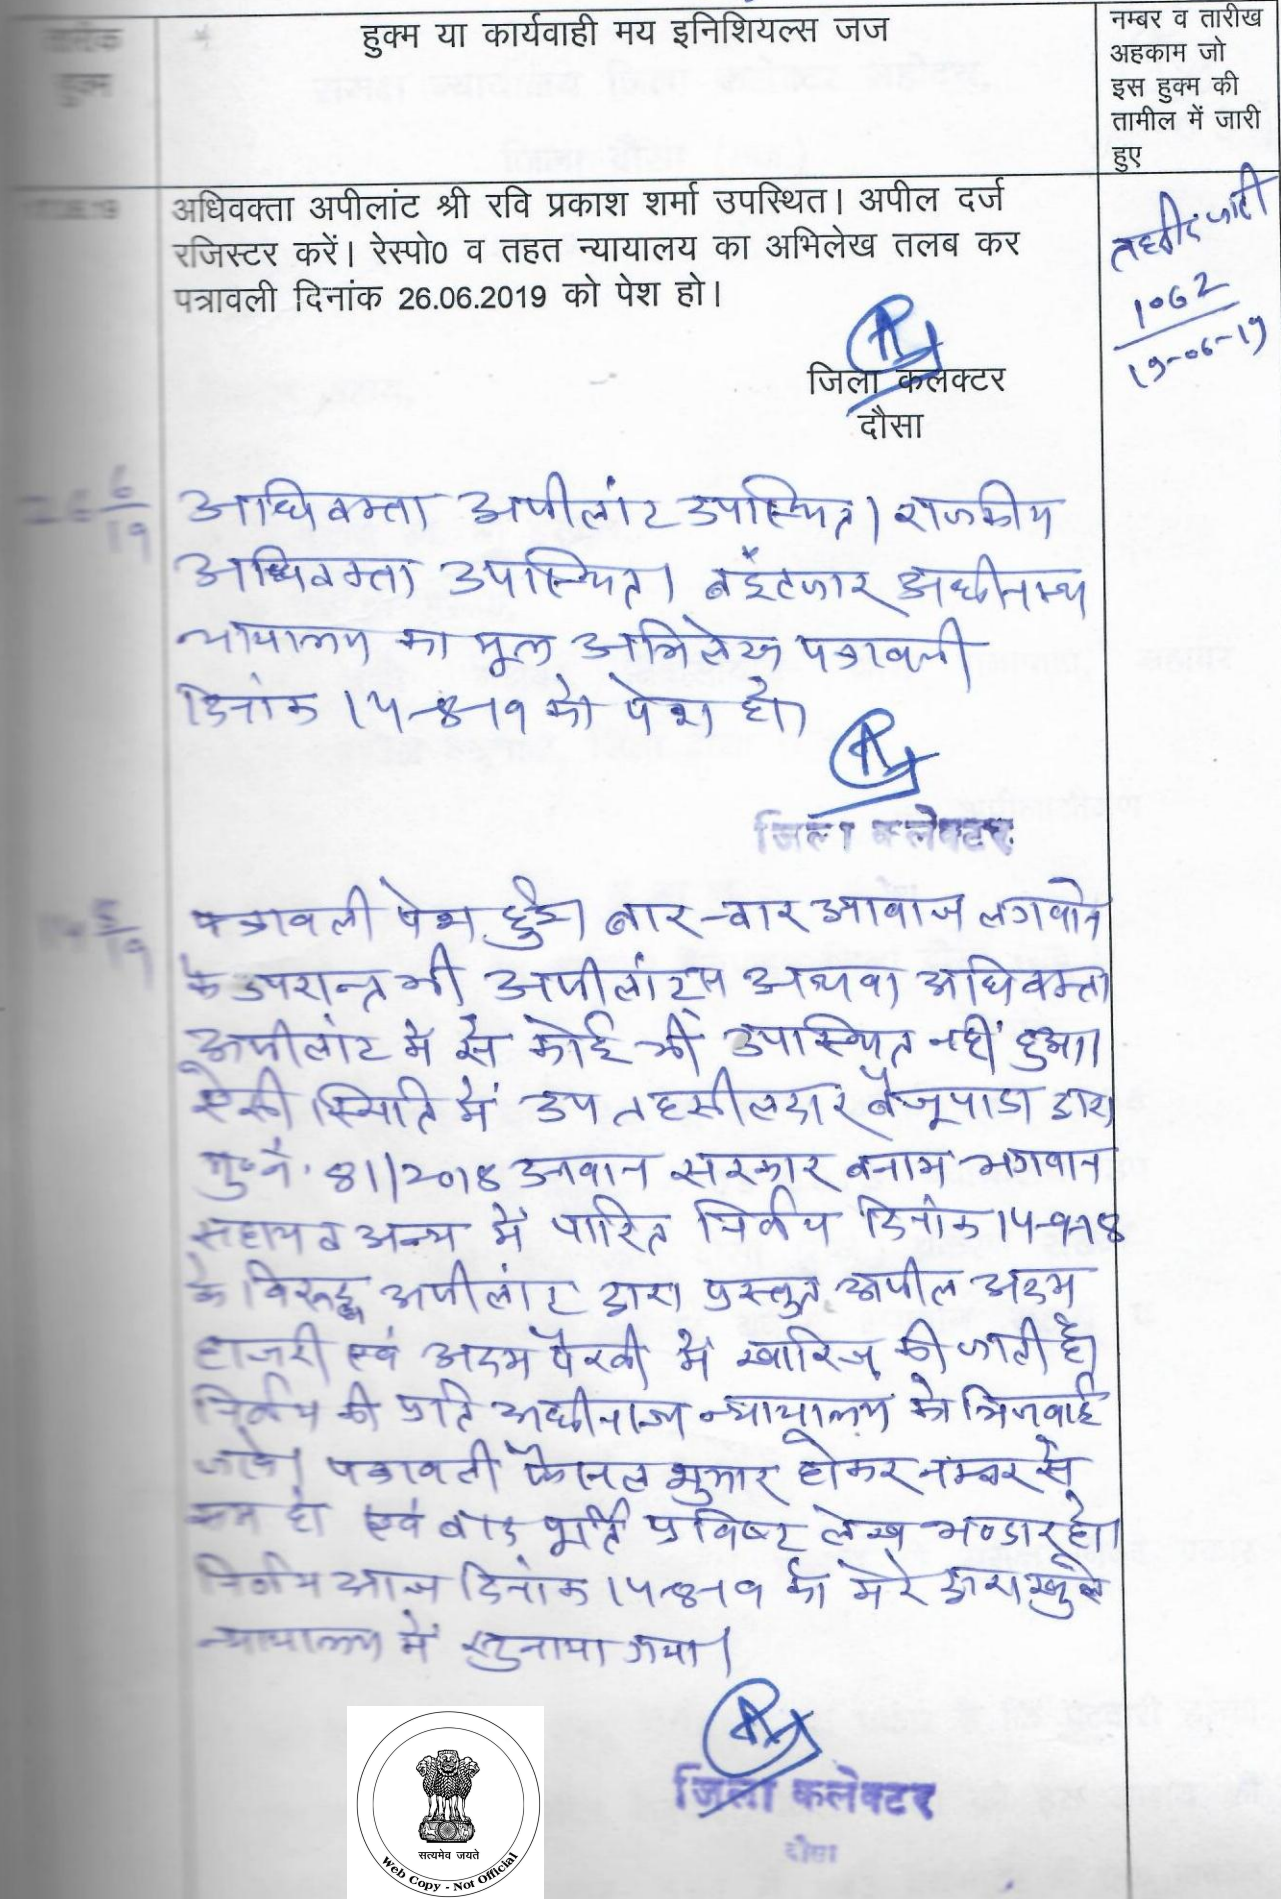 तारीख
हुक्म
हुक्म या कार्यवाही मय इनिशियल्स जज
नम्बर व तारीख
अहकाम जो
इस हुक्म की
तामील में जारी
हुए
अधिवक्ता अपीलांट श्री रवि प्रकाश शर्मा उपस्थित। अपील दर्ज
रजिस्टर करें। रेस्पो0 व तहत न्यायालय का अभिलेख तलब कर
पत्रावली दिनांक 26.06.2019 को पेश हो।
1062
19-06-19
जिला कलक्टर
दौसा
26 6/19
अधिवक्ता अपीलांट उपस्थित। राजकीय
अधिवक्ता उपस्थित। बइंतजार अधीनस्थ
न्यायालय का मूल अभिलेख पत्रावली
दिनांक 14-8-19 को पेश हो।
जिला कलेक्टर
14 8/19
पत्रावली पेश हुई। बार-बार आवाज लगवाने
के उपरान्त भी अपीलांट्स अथवा अधिवक्ता
अपीलांट में से कोई भी उपस्थित नहीं हुआ।
ऐसी स्थिति में उप तहसीलदार बैजूपाडा द्वारा
मु.नं. 811/2018 उनवान सरकार बनाम भगवान
सहाय व अन्य में पारित निर्णय दिनांक 14-9-18
के विरुद्ध अपीलांट द्वारा प्रस्तुत अपील अदम
हाजरी एवं अदम पैरवी में खारिज की जाती है।
निर्णय की प्रति अधीनस्थ न्यायालय को भिजवाई
जावे। पत्रावली फैसल शुमार होकर नम्बर से
कम हो एवं बाद पूर्ति प्रविष्ट लेख भण्डार हो।
निर्णय आज दिनांक 14-8-19 को मेरे द्वारा खुले
न्यायालय में सुनाया गया।
जिला कलेक्टर
दौसा
सत्यमेव जयते
Web Copy - Not Official